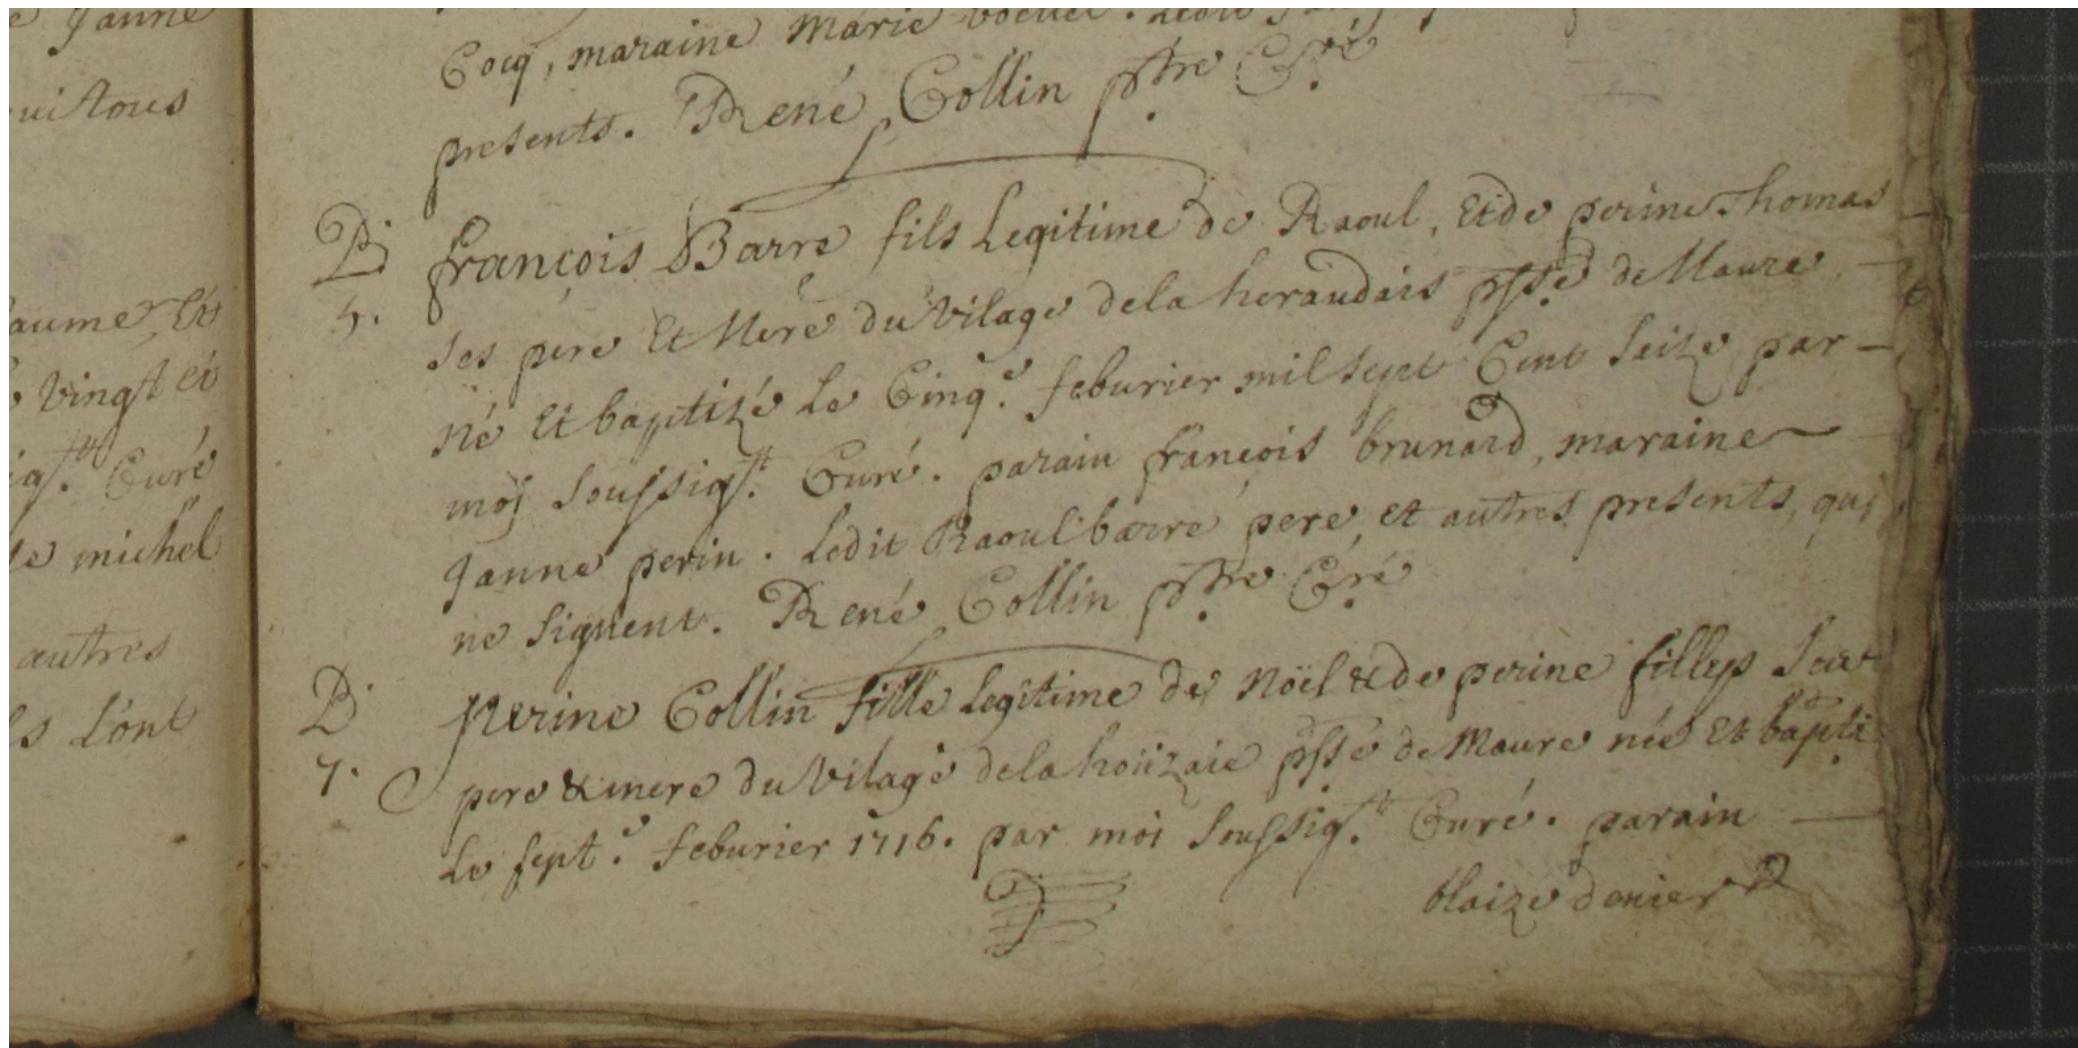 e Janne
uitous
aume, Et
vingt et
Curé
de michel
autres
ls sont
Cocq, maraine Marie
presents. René Collin ptre Curé
B. françois Barre fils Legitime de Raoul, Et de perine Thomas
5. Ses pere Et Mere du Vilage de la heraudais psse de Maure
né Et baptizé Le Cinqe feburier mil sept Cent Seize par
moÿ Soussigt Curé. parain françois brunard, maraine
Janne perin. Ledit Raoul barré pere, et autres presents, qui
ne Signent. René Collin ptre Curé
B. perine Collin fille Legitime de Noël & de perine filleps Ses
7. pere & mere du Vilage de la hoüzaie psse de Maure née Et bapti
Le septe feburier 1716. par moi Soussigt Curé. parain
blaize denier